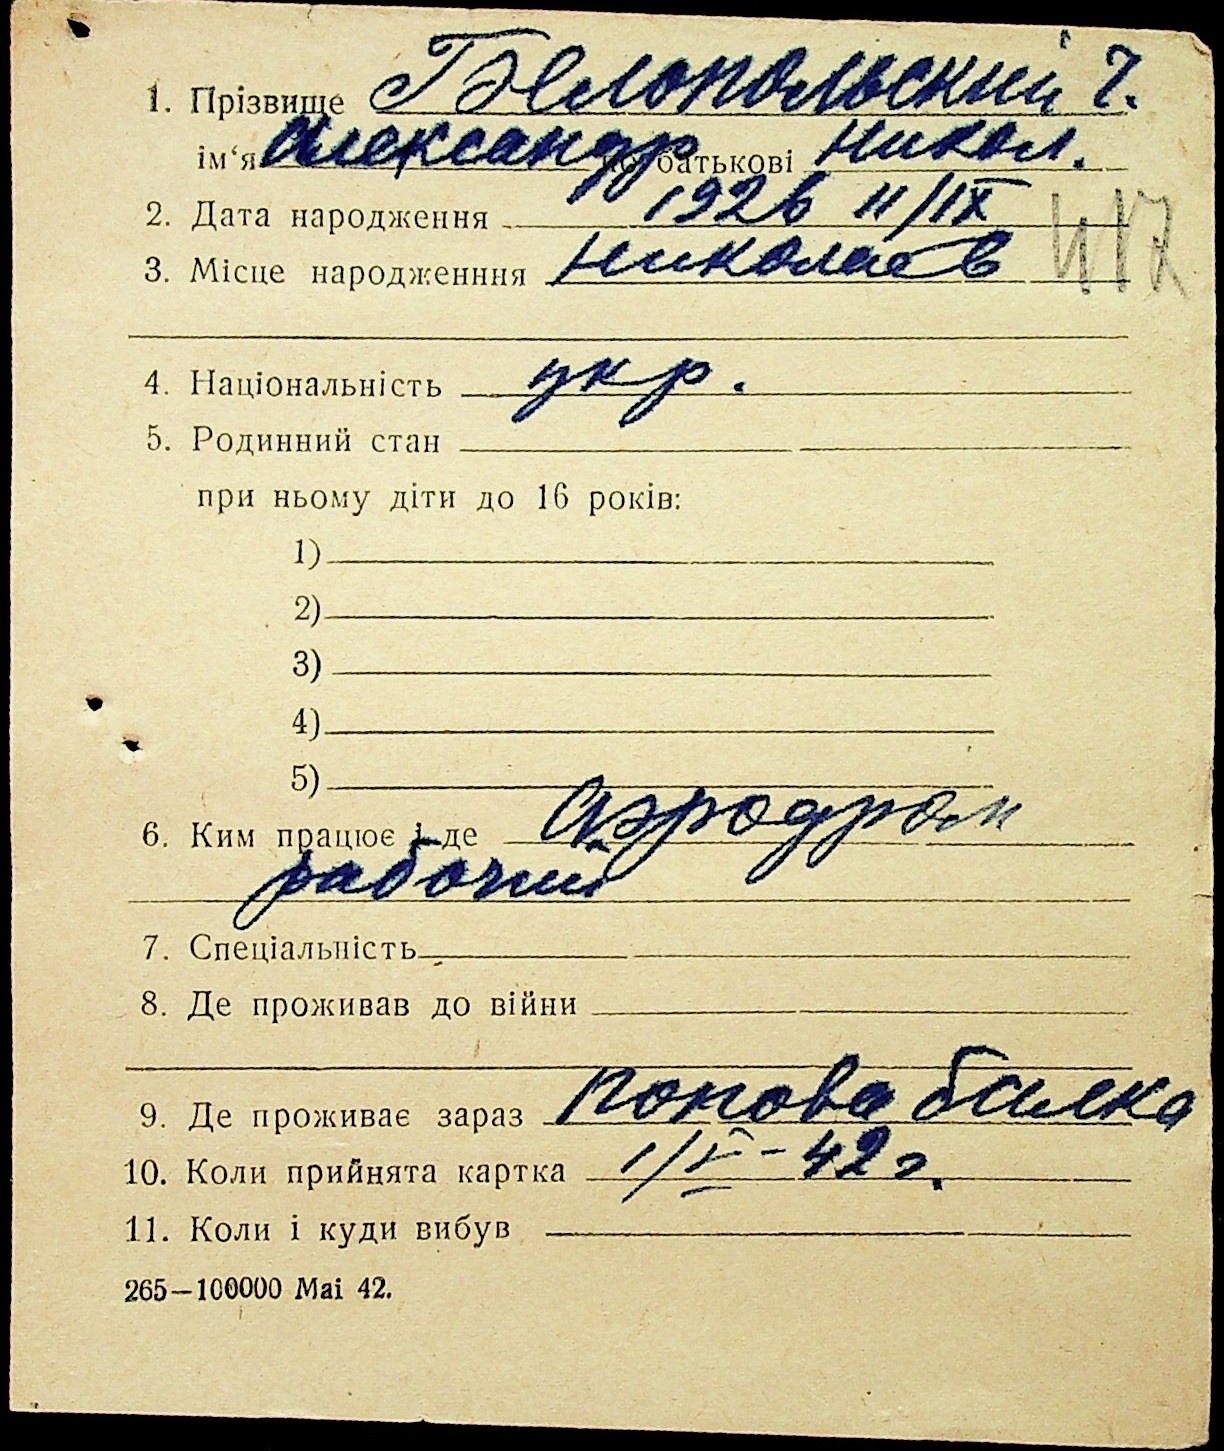 1. Прізвище Белопольский Г.
ім‘я Александр по батькові Никол.
2. Дата народження 1926 11/IX
3. Місце народженння Николаев 417
4. Національність укр.
5. Родинний стан
при ньому діти до 16 років:
1)
2)
3)
4)
5)
6. Ким працює і де Аэродром
рабочий
7. Спеціальність
8. Де проживав до війни
9. Де проживає зараз Попова балка
10. Коли прийнята картка 1/V-42 г.
11. Коли і куди вибув
265—100000 Mai 42.